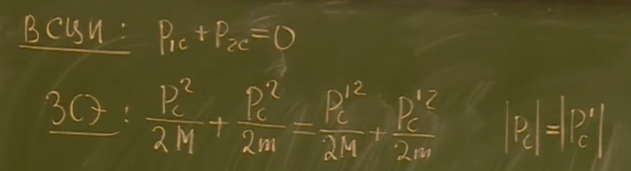 В СЦИ: P₁c + P₂c = 0
ЗСЭ: Pc²/2M + Pc²/2m = Pc'²/2M + Pc'²/2m |Pc| = |Pc'|